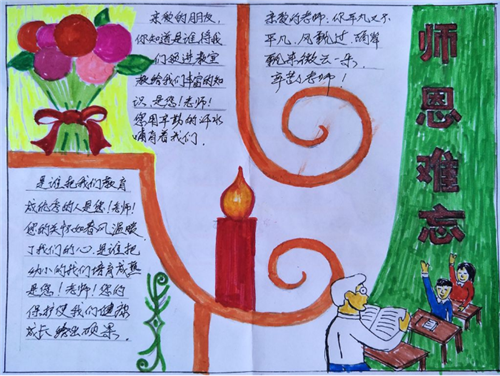 亲爱的朋友,
你知道是谁将我
们领进教室
教给我们丰富的知
识,是您!老师!
您用辛勤的汗水
哺育着我们.
亲爱的老师.你平凡又不
平凡,风飘过
飘来微云一朵,
辛苦了老师!
师恩难忘
是谁把我们教育
成优秀的人是您!老师!
您的关怀如春风,温暖
了我们的心,是谁把
幼小的我们培育成熟
是您!老师!您的
保护使我们健康
成长结出硕果.